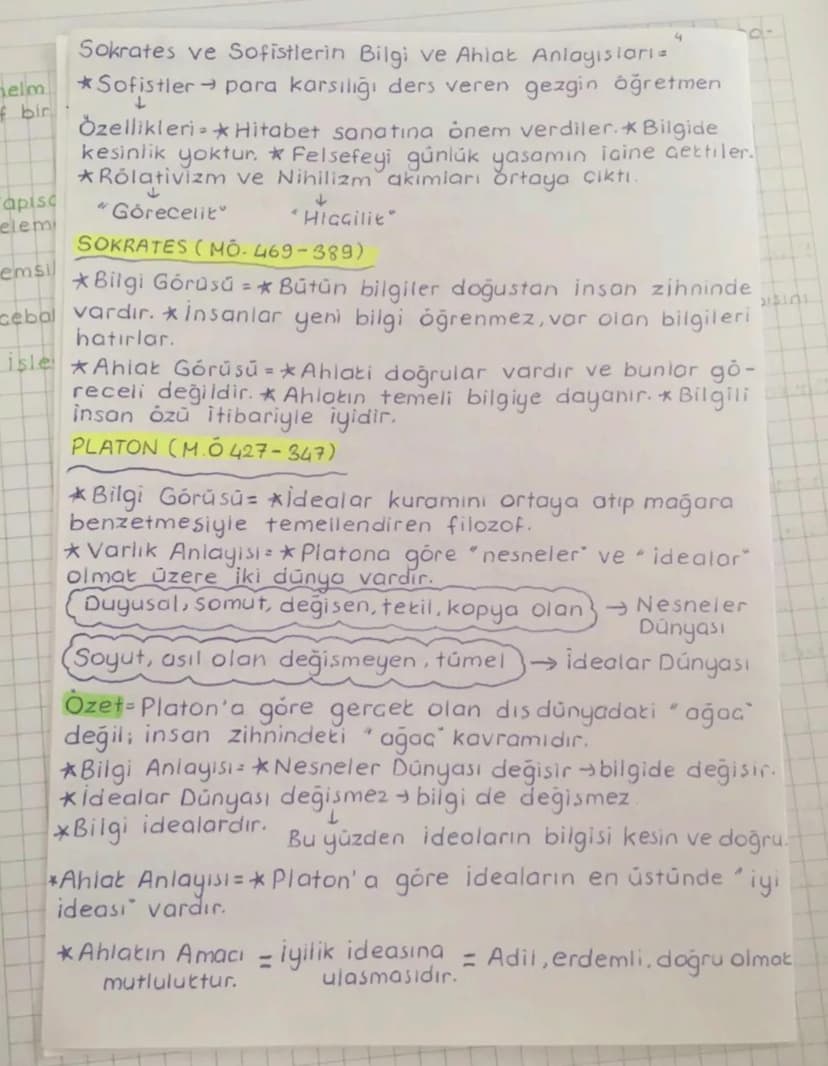 Sokrates ve Sofistlerin Bilgi ve Ahlak Anlayışları=
4
*Sofistler → para karşılığı ders veren gezgin öğretmen
↓
Özellikleri = *Hitabet sanatına önem verdiler. *Bilgide
kesinlik yoktur. *Felsefeyi günlük yaşamın içine çektiler.
*Rölativizm ve Nihilizm akımları ortaya çıktı.
↓ ↓
"Görecelik" "Hiççilik"
SOKRATES (MÖ. 469-389)
*Bilgi Görüşü = *Bütün bilgiler doğuştan insan zihninde
vardır. *İnsanlar yeni bilgi öğrenmez, var olan bilgileri
hatırlar.
*Ahlak Görüşü = *Ahlaki doğrular vardır ve bunlar gö-
receli değildir. *Ahlakın temeli bilgiye dayanır. *Bilgili
insan özü itibariyle iyidir.
PLATON (M.Ö 427-347)
*Bilgi Görüşü = *İdealar kuramını ortaya atıp mağara
benzetmesiyle temellendiren filozof.
*Varlık Anlayışı = *Platona göre "nesneler" ve "idealar"
olmak üzere iki dünya vardır.
Duyusal, somut, değişen, tekil, kopya olan → Nesneler
Dünyası
Soyut, asıl olan değişmeyen, tümel → İdealar Dünyası
Özet= Platon'a göre gerçek olan dış dünyadaki "ağaç"
değil; insan zihnindeki "ağaç" kavramıdır.
*Bilgi Anlayışı = *Nesneler Dünyası değişir → bilgide değişir.
*İdealar Dünyası değişmez → bilgi de değişmez
↓
*Bilgi idealardır. Bu yüzden ideaların bilgisi kesin ve doğru.
*Ahlak Anlayışı = *Platon'a göre ideaların en üstünde "iyi
ideası" vardır.
*Ahlakın Amacı = İyilik ideasına = Adil, erdemli, doğru olmak
mutluluktur. ulaşmasıdır.